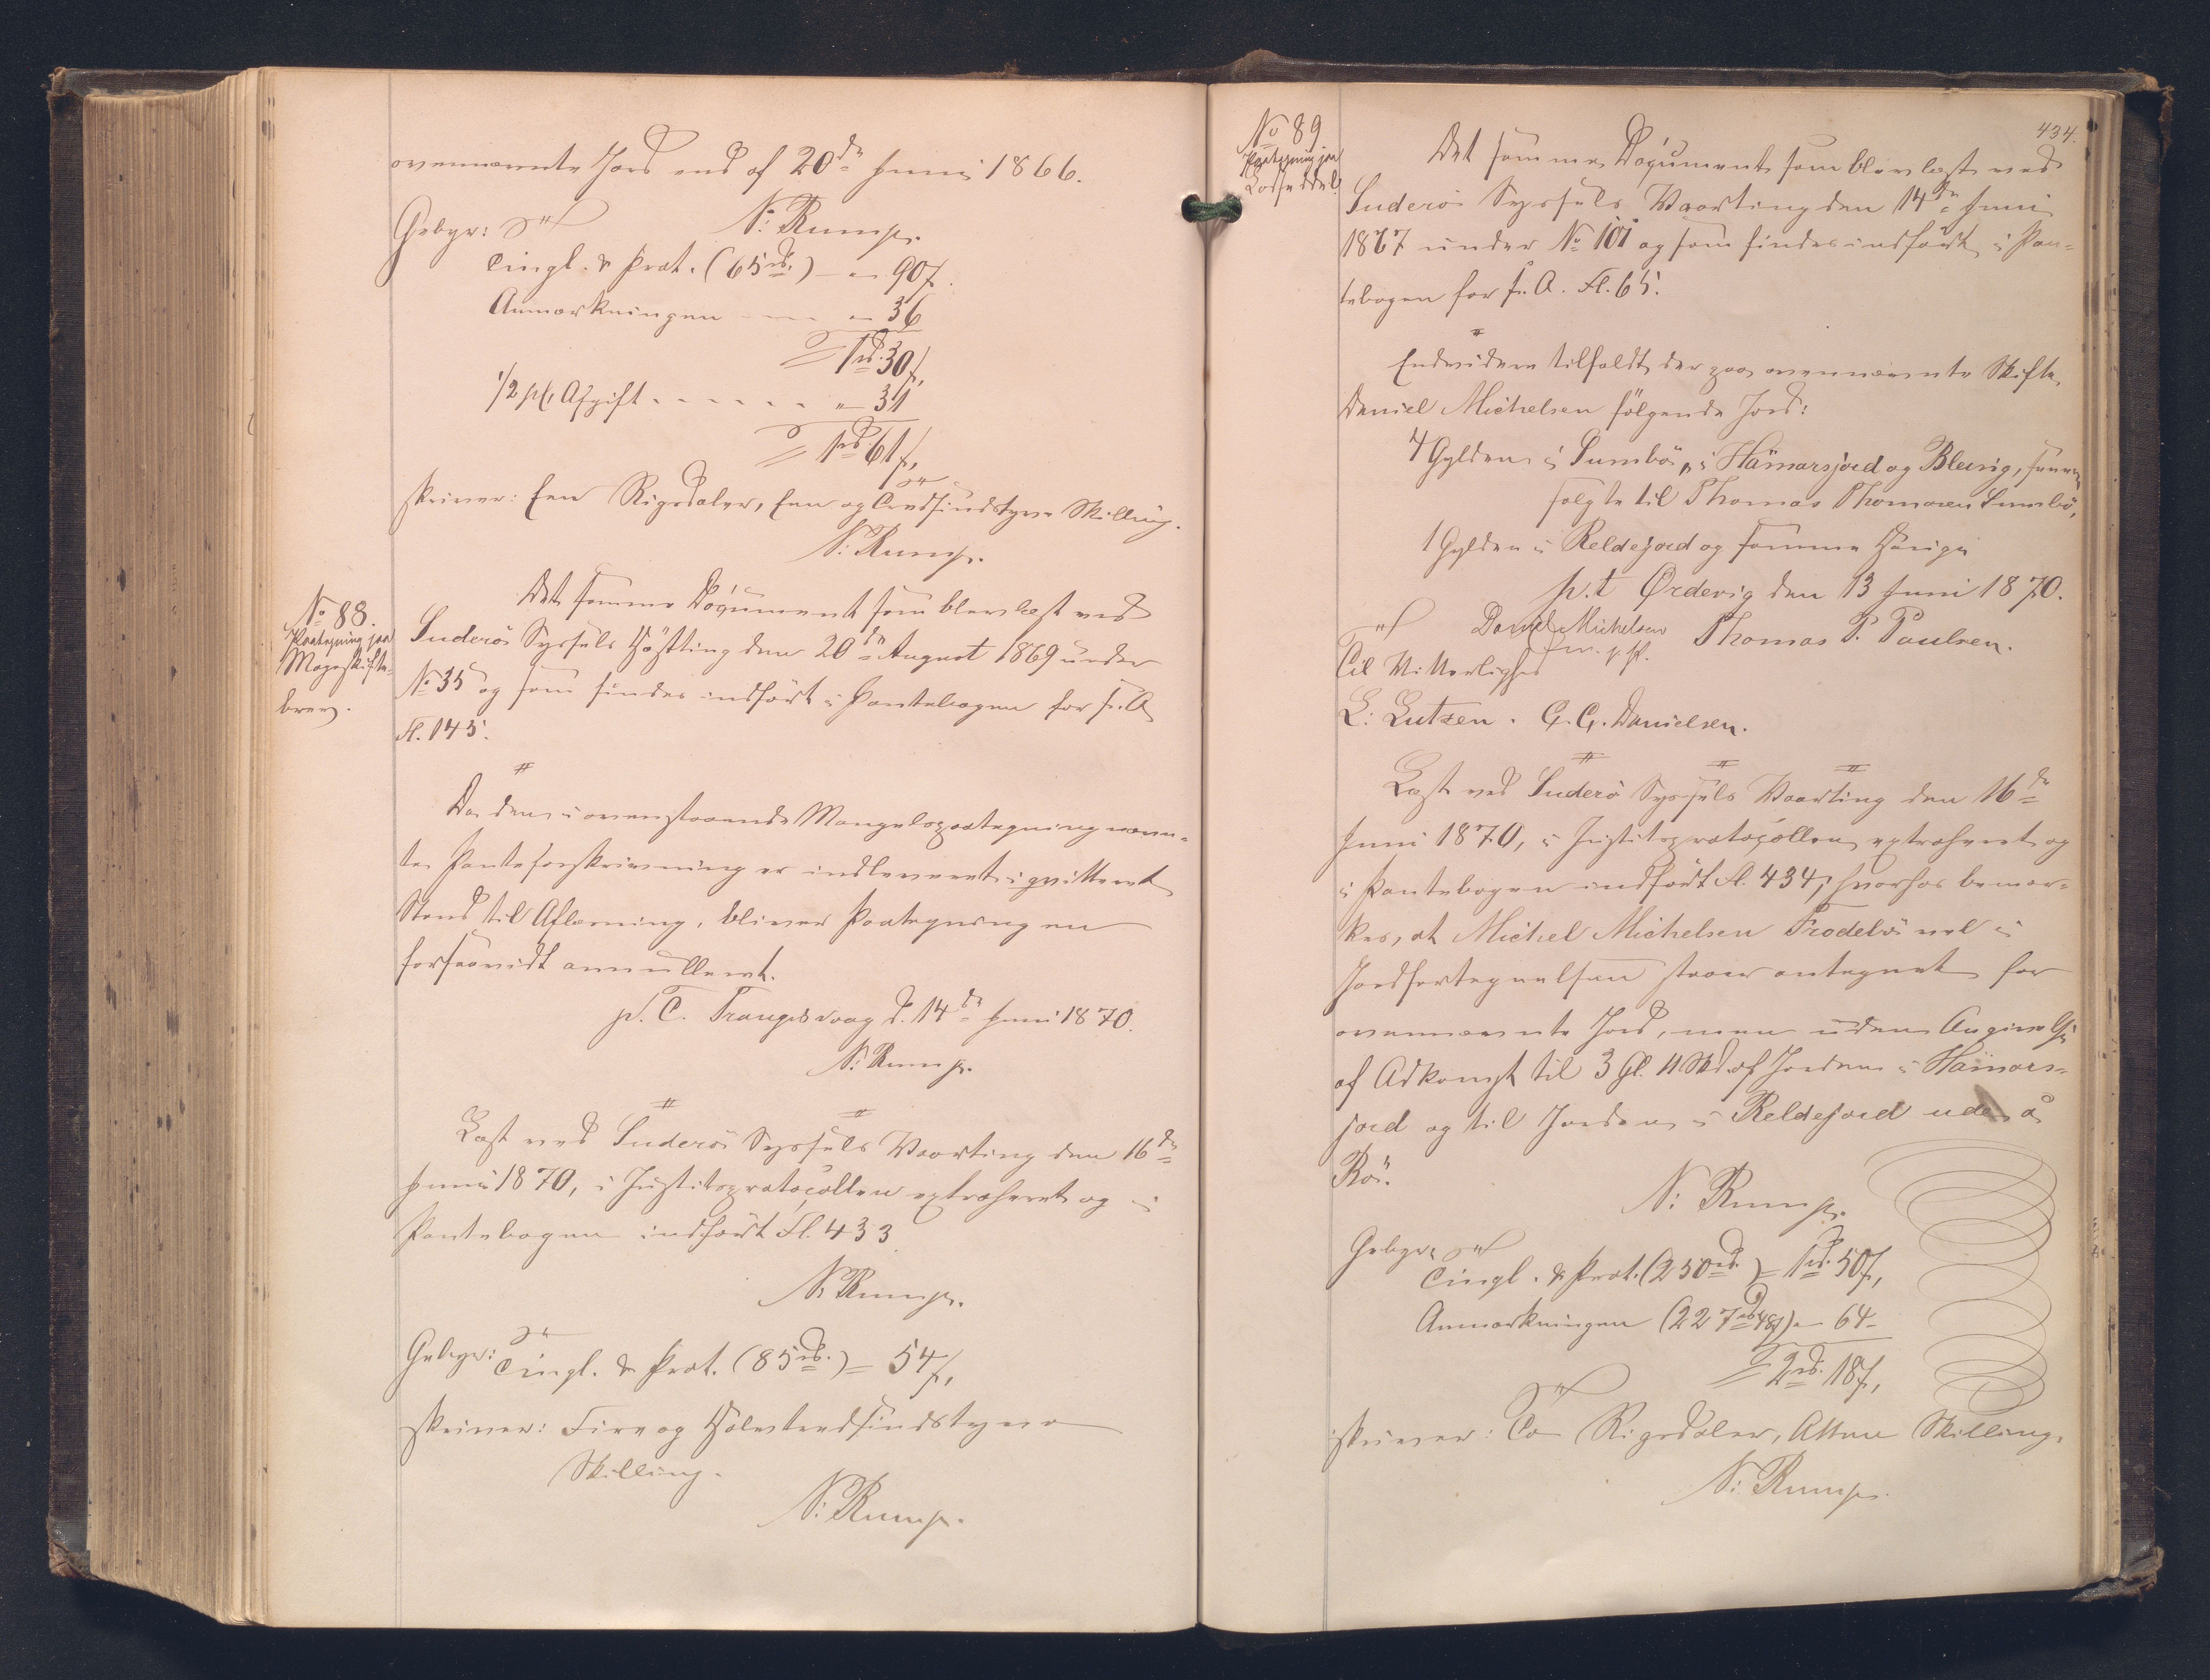 ovennævnte Jord end af 20de Juni 1866.
N: Rump.
Gebyr:
Tingl. & Prot. (65rd.) - " 90ſ.
Anmærkningen - - - " 36
1rd. 30ſ,
1/2 pCt. Afgift - - - - - - " 31
1rd 61ſ,
skriver: Een Rigsdaler, Een og Tredsindstyve Skilling.
N: Rump.
No 88.
Paategning paa
Mageskifte-
brev.
Det samme Document som blev læst ved
Suderö Syssels Høstting den 20de August 1869 under
No 35 og som findes indført i Pantebogen for s. A
Fl. 145.
Da den i ovenstaaende Mangelspaategning nævn-
te Panteforskrivning er indleveret i qvitteret
Stand til Aflæsning, bliver Paategningen
forsaavidt annulleret.
p. t. Trangisvaag d. 14de Juni 1870.
N: Rump.
Læst ved Suderö Syssels Vaarting den 16de
Juni 1870, i Justitsprotocollen extraheret og i
Pantebogen indført Fl. 433
N: Rump.
Gebyr: Tingl. & Prot. (85rd.) = 54ſ,
skriver: Fire og Halvtredsindstyve
Skilling.
N: Rump.
434.
No 89
Paategning paa
Lodseddel
Det samme Document som blev læst ved
Suderö Syssels Vaarting den 14de Juni
1867 under No 101 og som findes indført i Pan-
tebogen for s. A. Fl. 65.
Endvidere tilfaldt der paa ovennævnte Skifte
Daniel Michelsen følgende Jord:
4 Gylden i Sumbö, i Hamarsjord og Blevig,
solgte til Thomas Thomasen Sumbö,
1 Gylden i Reldejord og samme Hauge
p. t Ördevig den 13 Juni 1870.
Daniel Michelsen Thomas P. Paulsen.
m. f. P.
Til Vitterlighed
L: Lutzen. C. C. Danielsen.
Læst ved Suderö Syssels Vaarting den 16de
Juni 1870, i Justitsprotocollen extraheret og
i Pantebogen indført Fl. 434, hvorhos bemær-
kes, at Michel Michelsen Frodebö vel i
Jordfortegnelsen staaer antegnet for
ovennævnte Jord, men uden Angivelse
af Adkomst til 3 Gl. 11 Skd. af Jorden i Hamars-
jord og til Jorden i Reldejord uden å
Rö.
N: Rump.
Gebyr:
Tingl. & Prot. (250rd.) = 1rd. 50ſ,
Anmærkningen (227rd 48ſ) " 64-
2rd. 18ſ,
skriver: To Rigsdaler, Atten Skilling.
N: Rump.